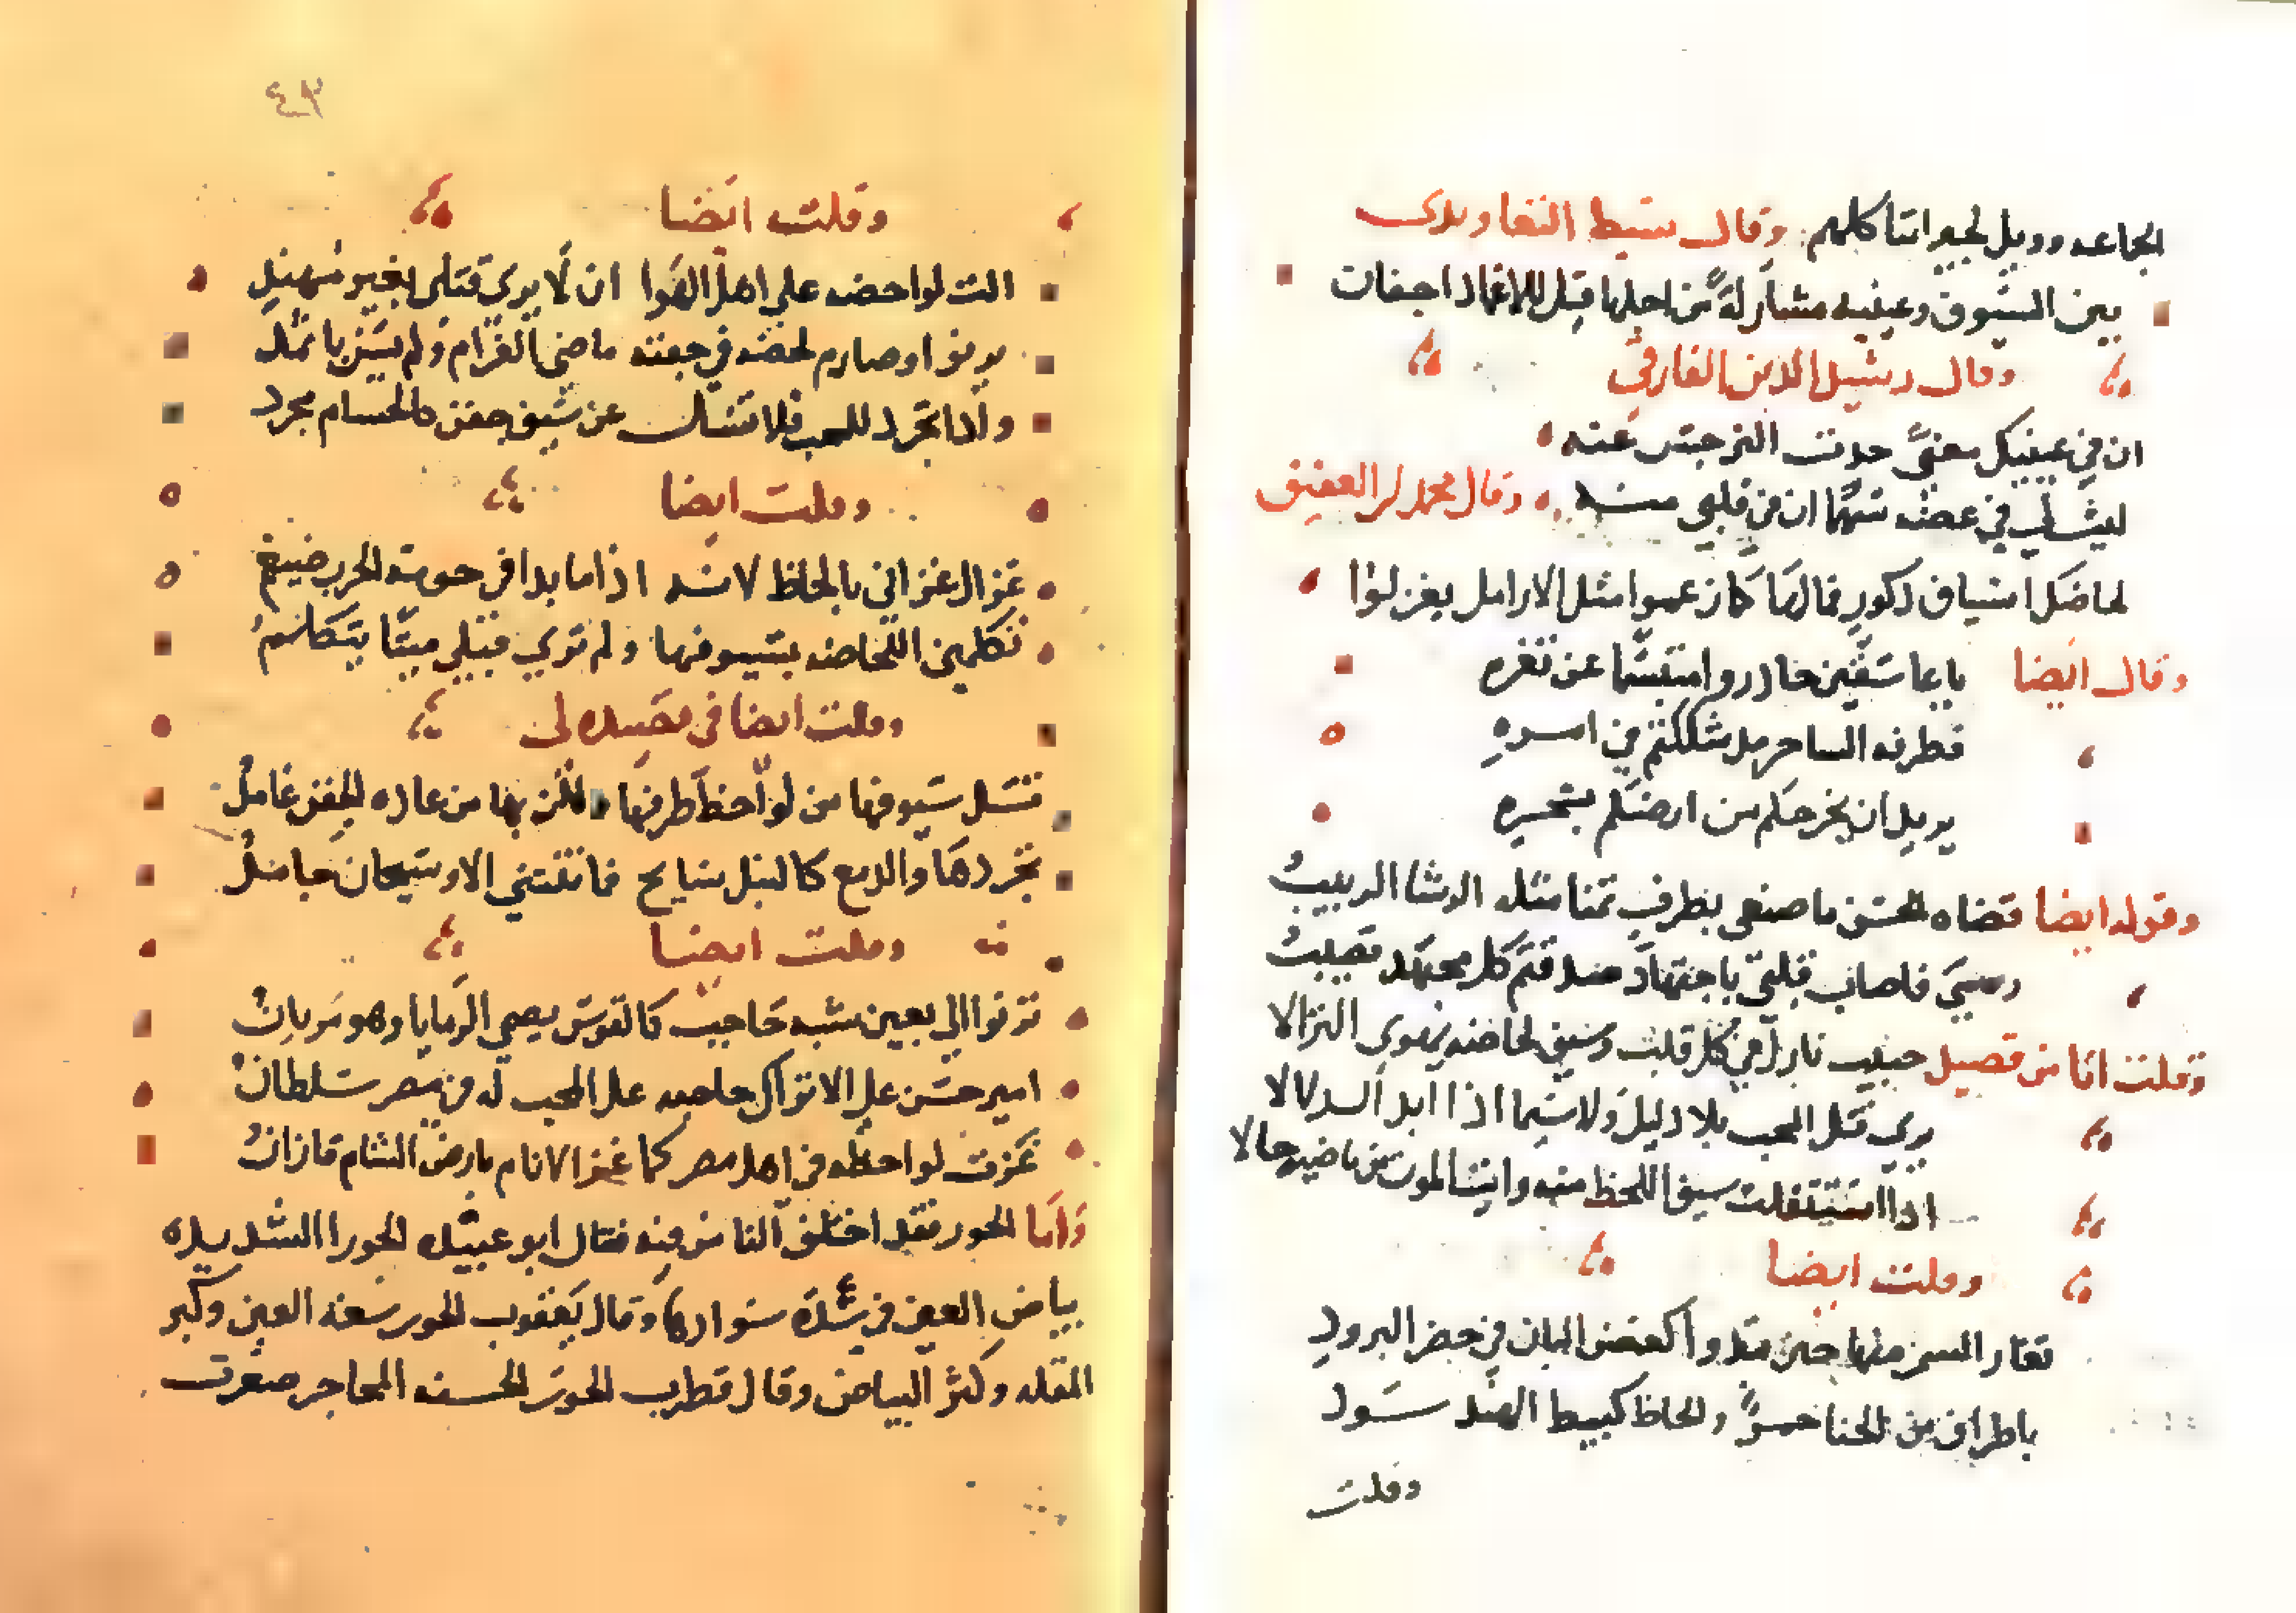 الجاعه وويل لجيراننا كلهم وقال سبط التعاويدى
بين السيوف وعينيه مشاركة من اجلها قيل للاغماد اجفان
وقال رشيد الدين الفارقي
ان في عينيك معنى حدث النرجس عنه
ليت لي في غصنه سهما ان في قلبي منه وقال محمد بن العفيف
لحاضك اسياف ذكور فما لها كما زعموا مثل الارامل يغزلوا
وقال ايضا يا عاشقين حاذروا مبتسما عن ثغره
فطرفه الساحر مذ شككتم في امره
يريد ان يخرجكم من ارضكم بسحره
وقوله ايضا قضاه الحسن ما صنعي بطرف تمنا مثله الرشا الربيب
رمى فاصاب قلبي باجتهاد صدقتم كل مجتهد مصيبت
وقلت انا من قصيد حبيب نازل في كل قلب وسيف لحاضه يهوى النزالا
يرى قتل المحب بلا دليل ولا سيما اذا ابد الدلالا
اذا استقتلت سيف اللحظ منه راينا الموت من ماضيه حالا
وقلت ايضا
تغار السمر منها حين تبدوا كغصن البان في خضر البرود
باطراف من الحنا حمر والحاظ كبيط الهند سود
وقلت
وقلت ايضا
الت لواحضه على اهل الهوا ان لا يرى قتلى بغير مهند
يرنوا وصارم لحضه في جفنه ماضى الغرام ولم يسن بامثد
واذا تجرد للمحب فلا تسال عن سيف جفن كالحسام مجرد
وقلت ايضا
غزال غزاني بالحاظ لانه اذا ما بدا في حومة الحرب ضيغم
تكلمين اللحاضه بسيوفها ولم ترى قبلي ميتا يتكلم
وقلت ايضا في قصيده لى
تسل سيوفها من لواحظ طرفها ولكن بها من عاده الجفن غامد
تجردها والدمع كالنيل سايح فما تلتقي الا وسيحان جامد
وقلت ايضا
ترنوا الي بعين شبه حاجب كالقوس يصمي الرمايا وهو مربان
امير حسن على الاتراك حاجبه على المحب له في مصر سلطان
غزت لواحظه في اهل مصر كما غزا الانام بارض الشام قازان
واما الحور فقد اختلف الناس فيه فقال ابو عبيده الحورا الشديده
بياض العين في شدة سوادها وقال يعقوب الحور سعة العين وكبر
المقله وكثر البياض وقال قطرب الحور الحسنه المحاجر صغرت